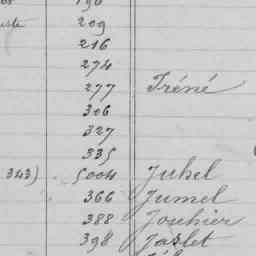 209
216
274
277 Iréné
306
327
335
343) 5004 Juhel
366 Jumel
388 Jouhier
398 Jaslet